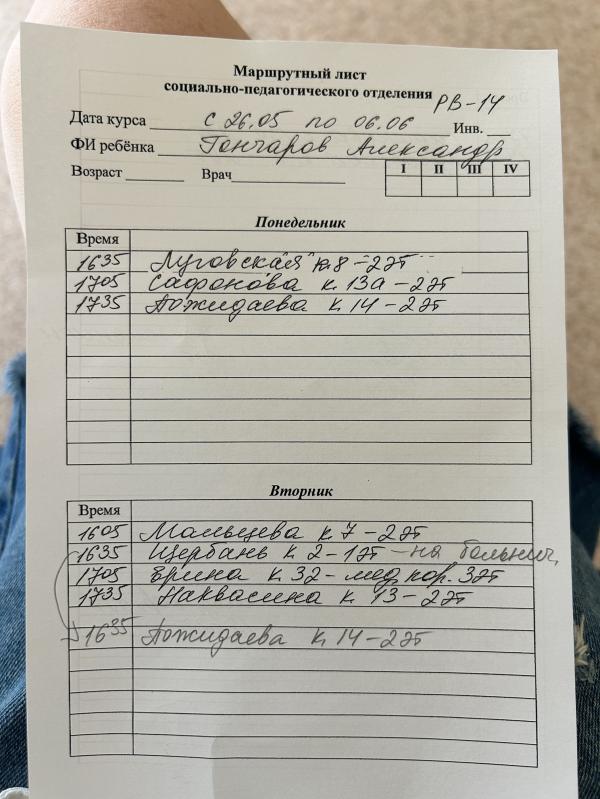 Маршрутный лист
социально-педагогического отделения
РВ-14
Дата курса с 26.05 по 06.06 Инв.
ФИ ребёнка Гончаров Александр
Возраст Врач
I II III IV
Понедельник
Время
16 35 Луговская к. 8-2эт
17 05 Сафонова к. 13а-2эт
17 35 Пожидаева к. 14-2эт
Вторник
Время
16 05 Мальцева к 7-2эт
16 35 Щербань к 2-1эт - на больнич.
17 05 Ерина к 32- мед кор. 3эт
17 35 Наквасина к 13-2эт
16 35 Пожидаева к. 14-2эт